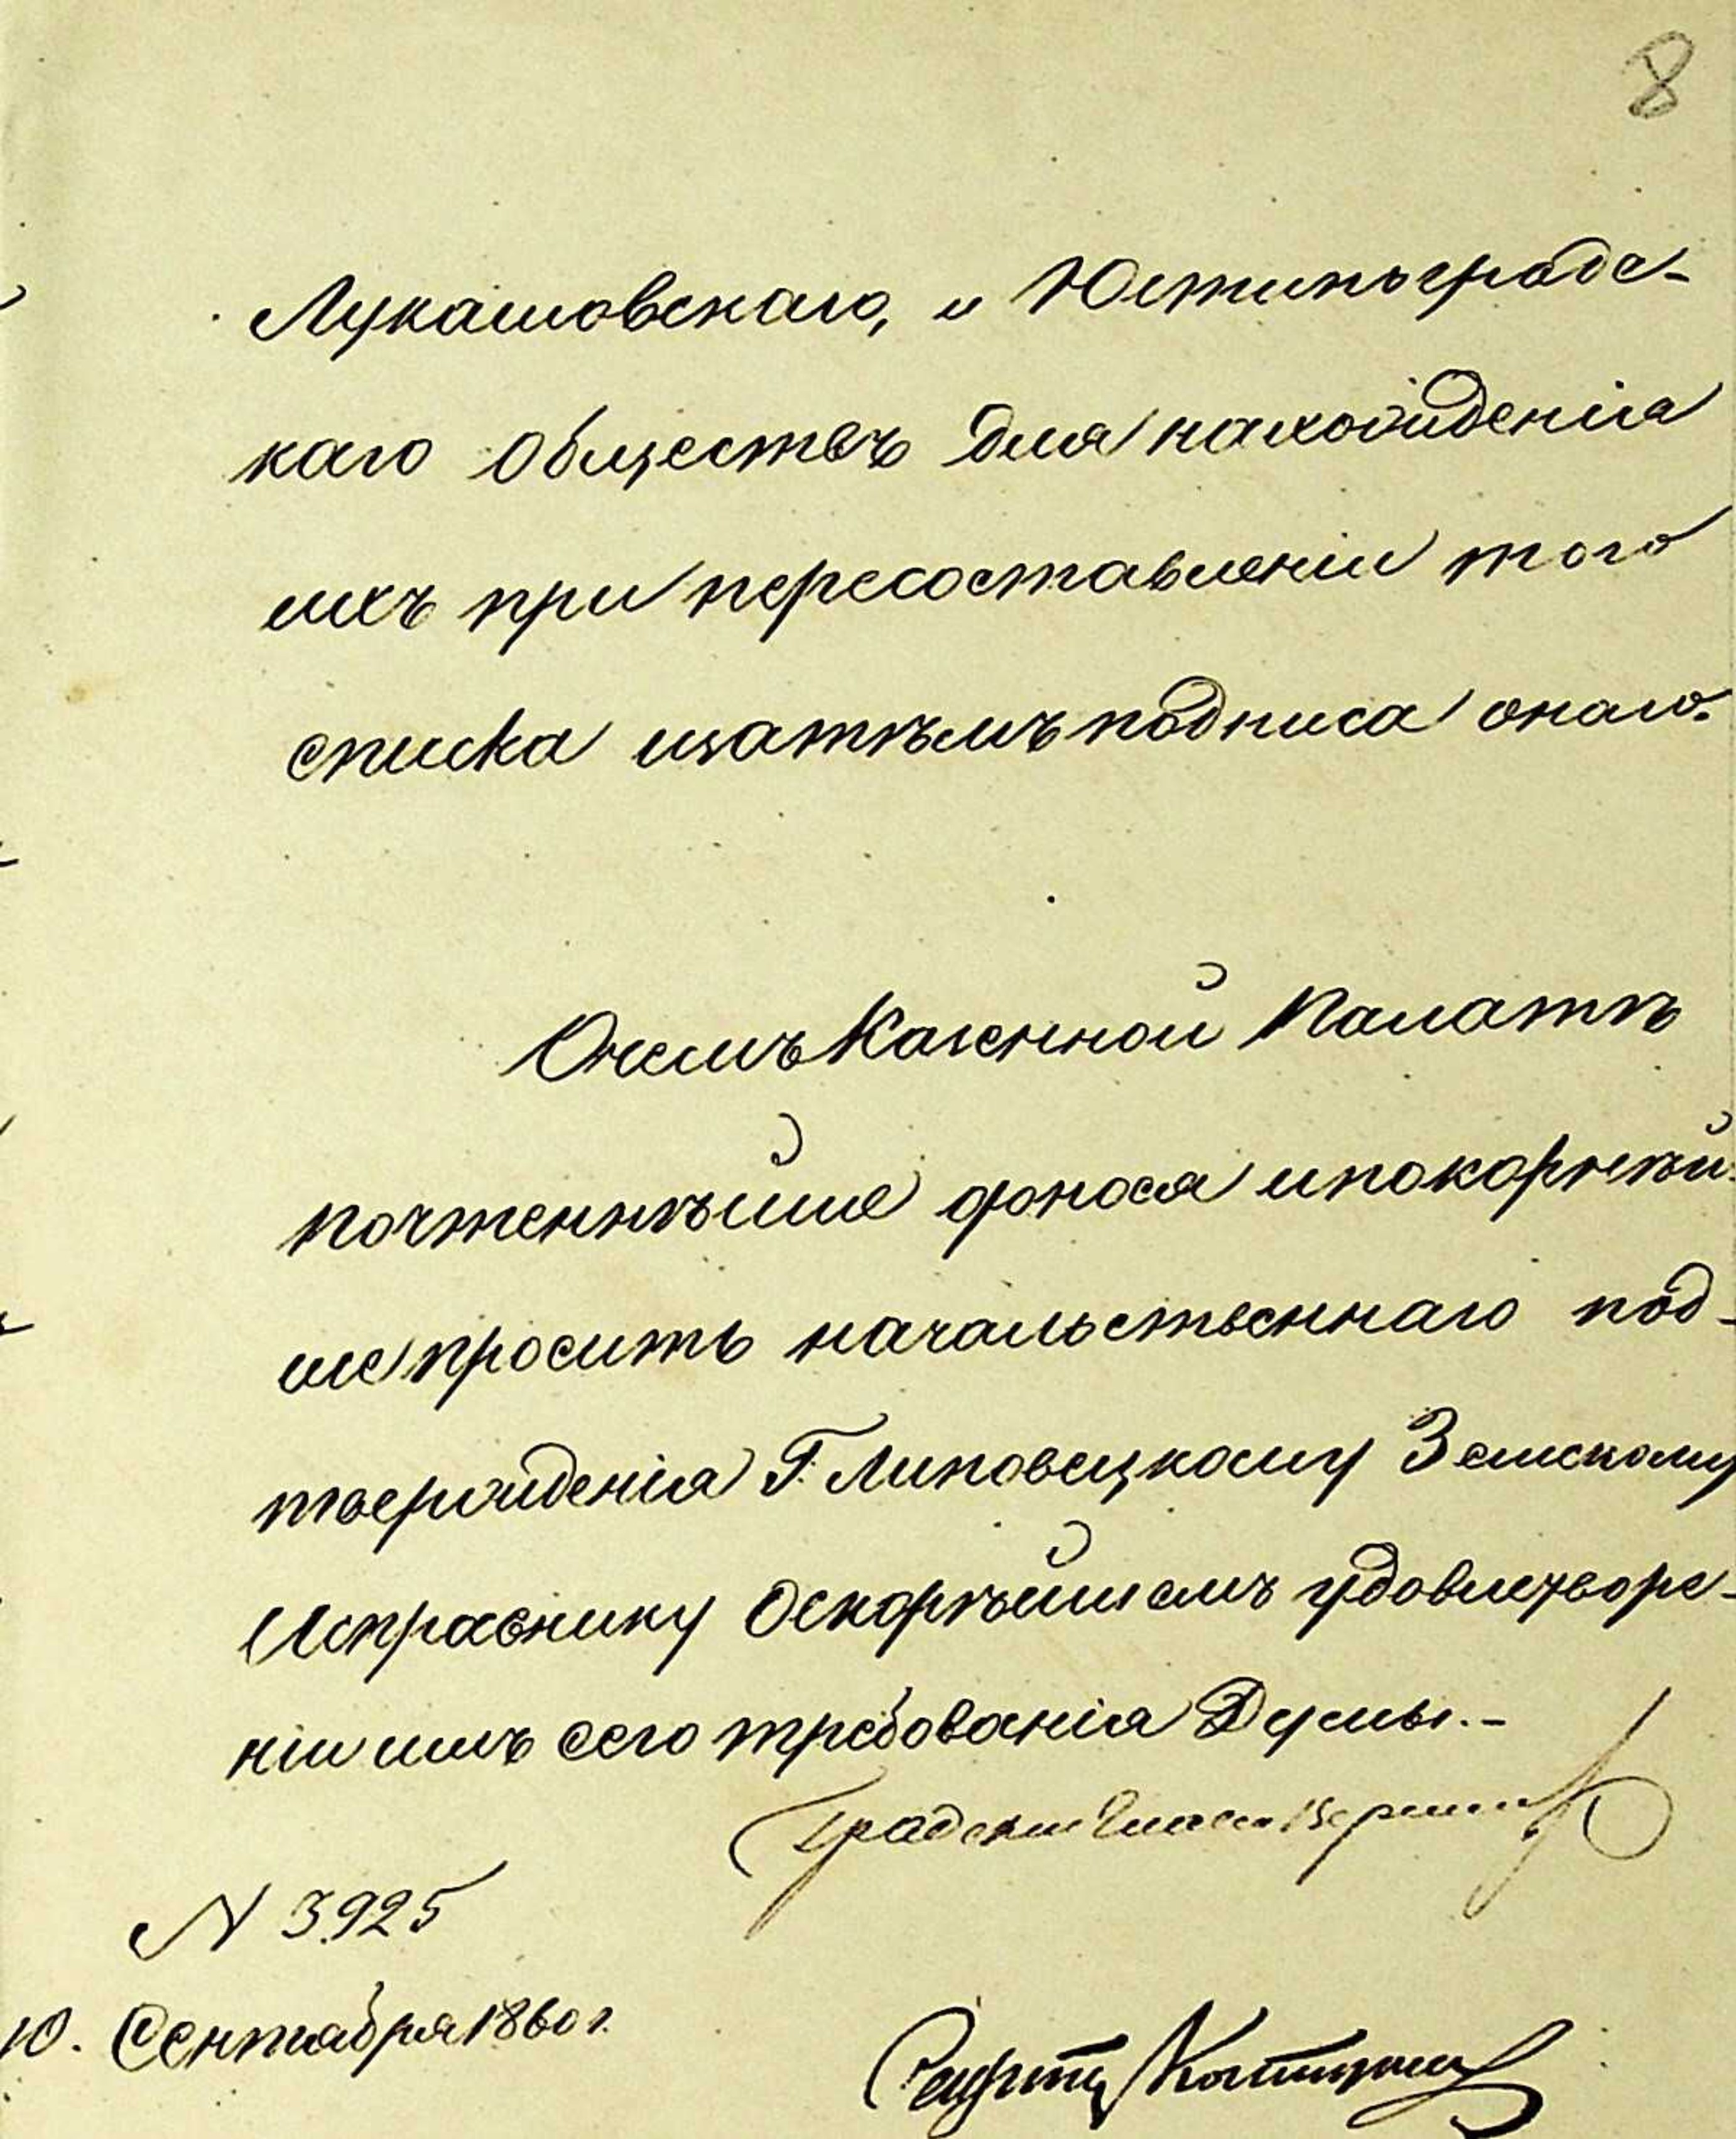 8
Лукашовскаго, и Юстинъградс-
каго обществъ для нахожденія
ихъ при пересоставленіи того
списка изатѣмъ подписа онаго.
Очемъ Казенной Палатѣ
почтеннѣйше донося ипокорнѣй-
ше просить начальственнаго под-
твержденія Г. Липовецкому Земскому
Исправнику оскорѣйшемъ удовлетворе-
ніи имъ сего требованія Думы.-
Градскій Глава
N 3925
10. Сентября 1860 г.